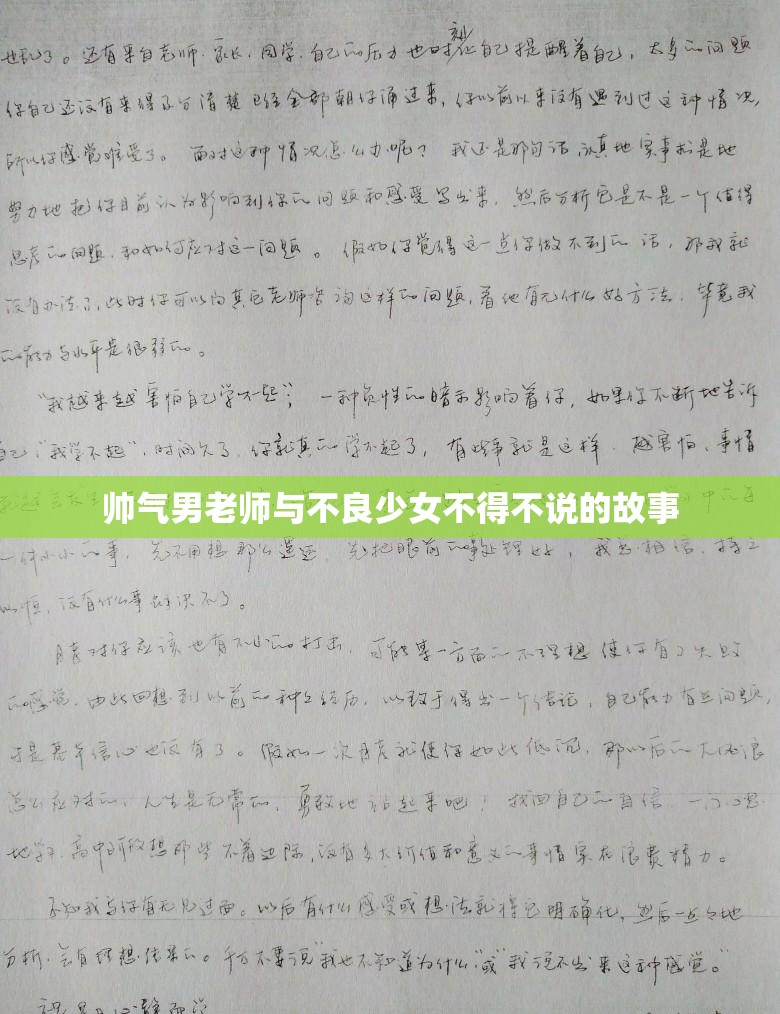 也乱了。还有来自老师、家长、同学、自己的压力也时刻在自己提醒着自己，太多的问题
你自己还没有来得及分清楚已经全部朝你涌过来，你以前从来没有遇到过这种情况，
所以你感觉难受了。面对这种情况怎么办呢？我还是那句话，认真地实事求是地
努力地把你目前认为影响到你的问题和感受写出来，然后分析它是不是一个值得
思考的问题，和如何应对这一问题。假如你觉得这一点你做不到的话，那我就
没有办法了，此时你可以向其它老师咨询这样的问题，看他有无什么好方法，毕竟我
的能力与水平是很弱的。
“我越来越害怕自己学不起”，一种负性的暗示影响着你，如果你不断地告诉
自己“我学不起”，时间久了，你就真的学不起了，有些事就是这样，越害怕，事情
帅气男老师与不良少女不得不说的故事
一件小小的事，先不用想那么遥远，先把眼前的事处理好，我总相信，持之
以恒，没有什么事解决不了。
月考对你应该也有不小的打击，可能某一方面的不理想使你有了失败
的感觉，由此回想到以前的种种经历，以致于得出一个结论，自己能力有些问题，
于是甚至信心也没有了。假如一次月考就使你如此低沉，那以后的大风浪
怎么应对的，人生是无常的，勇敢地站起来吧！找回自己的自信，一门心思
地学习，高中所以想那些不着边际，没有多大价值和意义的事情实在浪费精力。
不知我与你有无见过面。以后有什么感受或想法就将它明确化，然后一点点地
分析，会有理想结果的。千万不要说“我也不知道为什么”或“我说不出来这种感觉。”